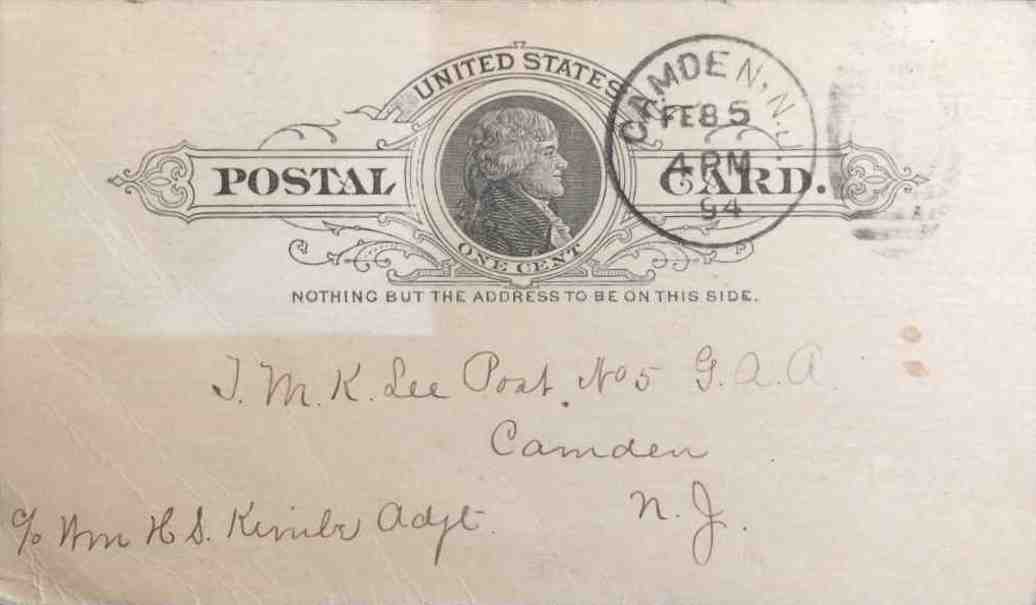 UNITED STATES
POSTAL CARD.
ONE CENT
NOTHING BUT THE ADDRESS TO BE ON THIS SIDE.
CAMDEN, N.J.
FEB 5
4 PM
94
T. M. K. Lee Post No 5 G. A. R.
Camden
N. J.
c/o Wm H S. Kimble Adjt.